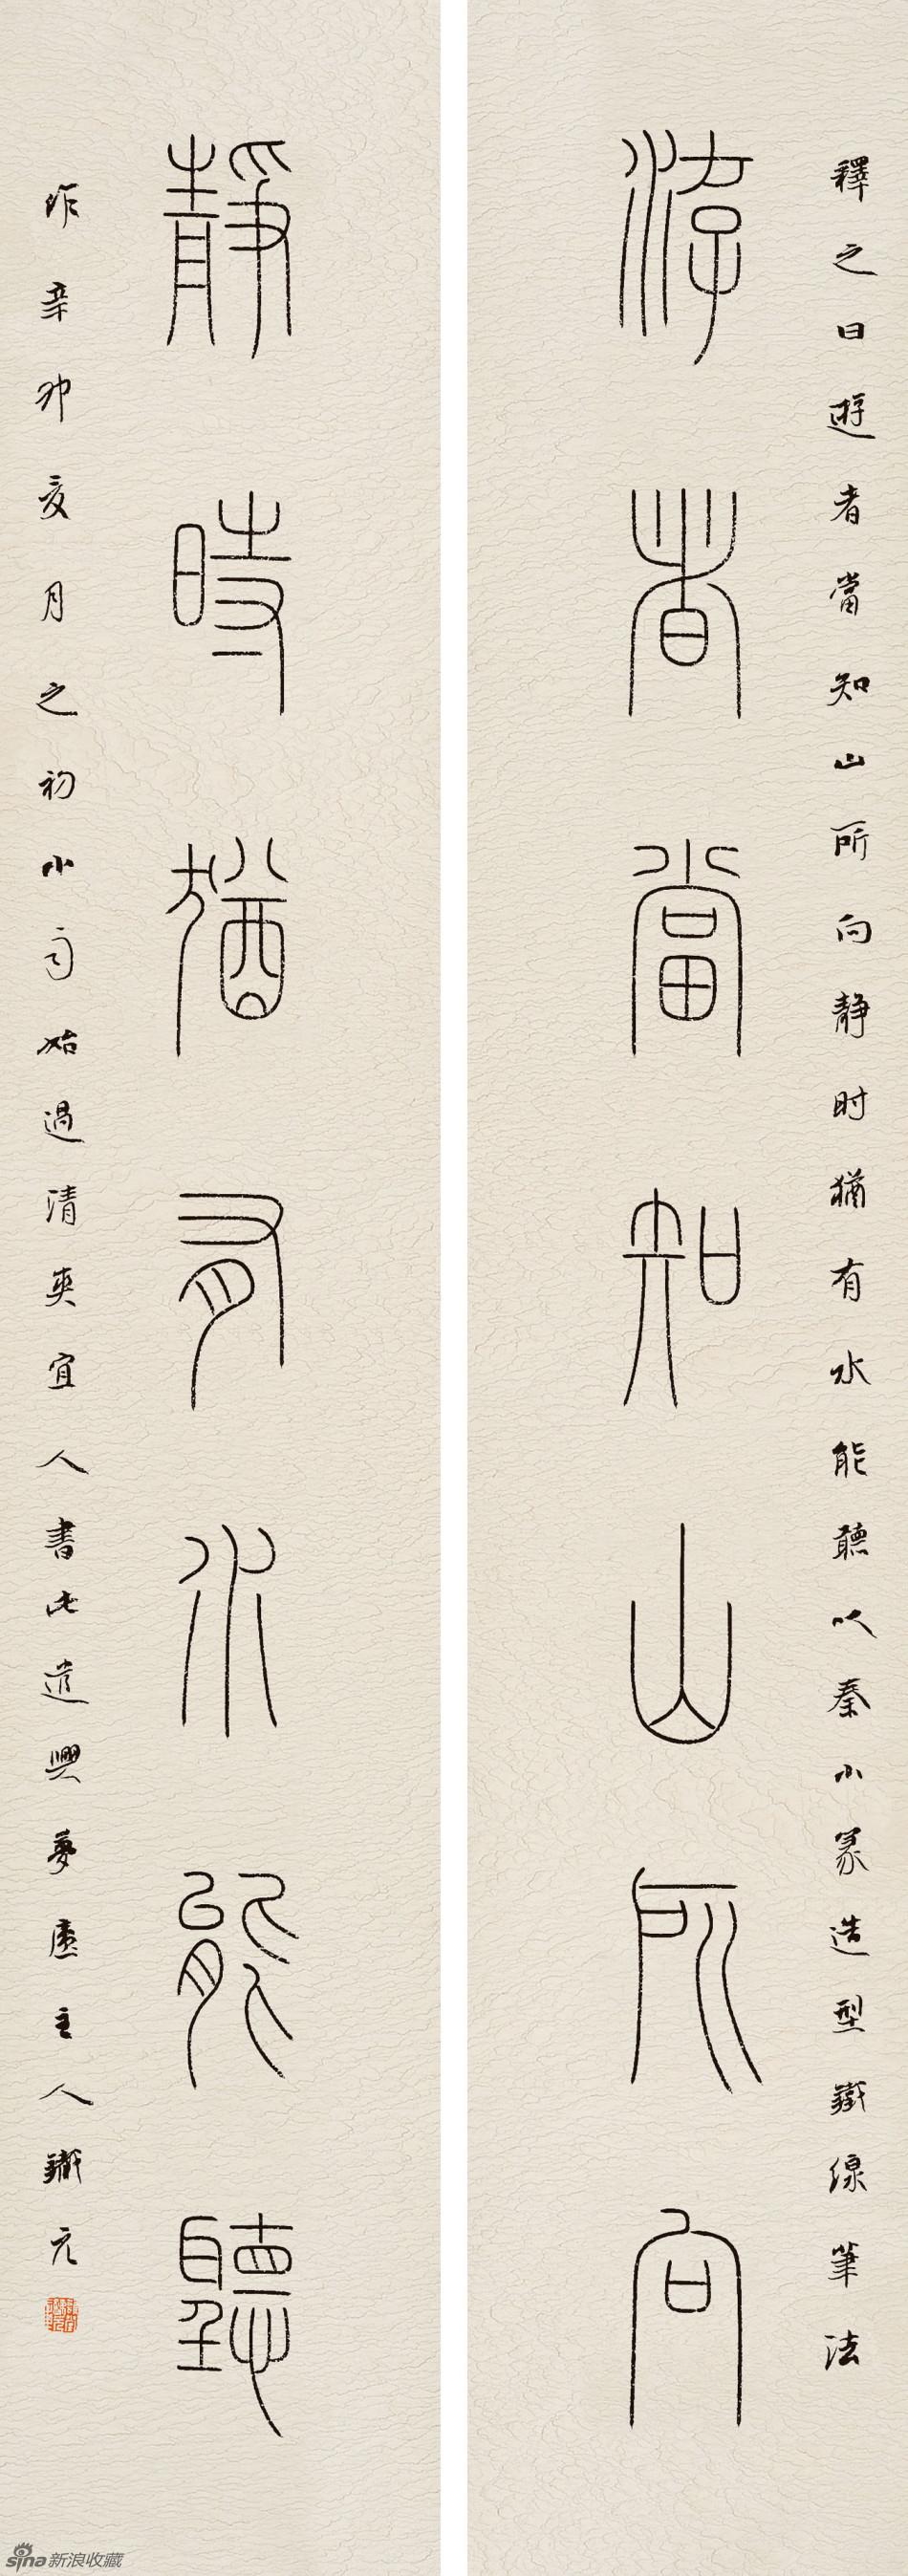 釋之曰遊者當知山所向静时猶有水能聽以秦小篆造型鐵線筆法
游者當知山所向
靜時猶有水能聽
作辛卯亥月之初小雨始過清爽宜人書此遣興夢廬主人鐵元
sina新浪收藏